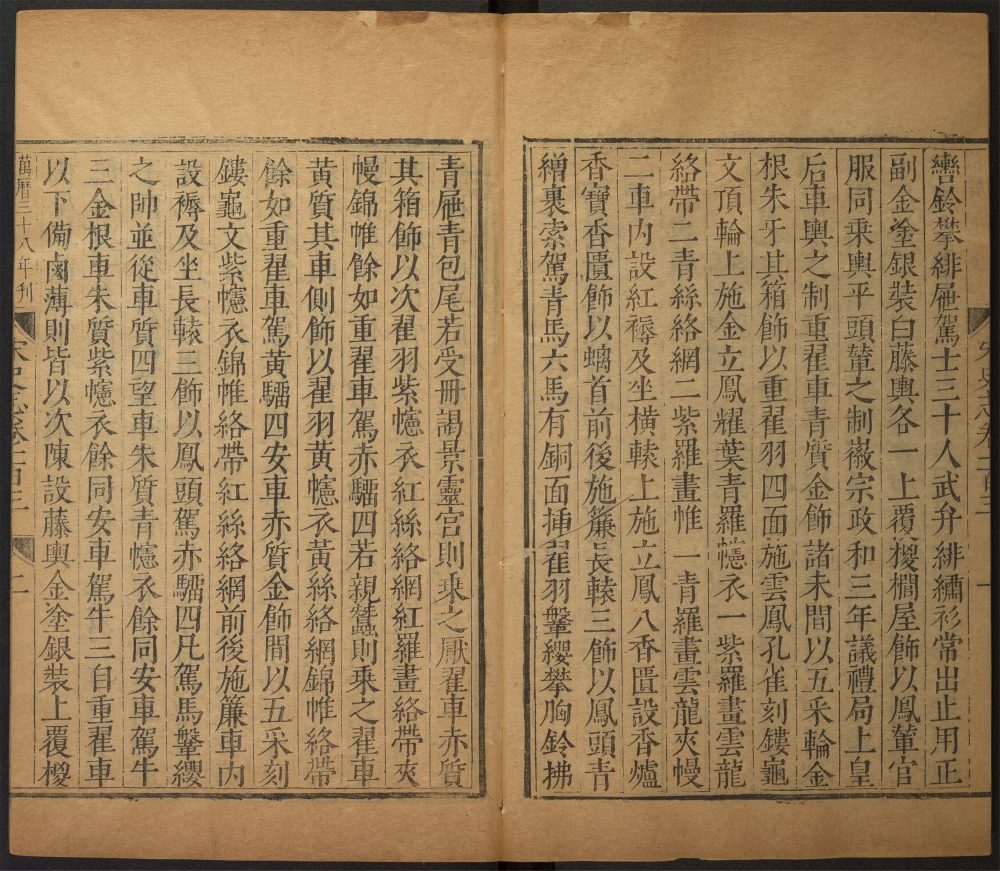 轡鈴攀緋屜駕士三十人武弁緋繡衫常出止用正
副金塗銀裝白藤輿各一上覆椶櫚屋飾以鳳輦官
服同乗輿平頭輦之制徽宗政和三年議禮局上皇
后車輿之制重翟車青質金飾諸末間以五采輪金
根朱牙其箱飾以重翟羽四面施雲鳳孔雀刻鏤龜
文頂輪上施金立鳳耀葉青羅幰衣一紫羅畫雲龍
絡帶二青絲絡網二紫羅畫帷一青羅畫雲龍夾幔
二車内設紅褥及坐橫轅上施立鳳八香匱設香爐
香寶香匱飾以螭首前後施簾長轅三飾以鳳頭青
繒裹索駕青馬六馬有銅面插翟羽鞶纓攀胸鈴拂
青屜青包尾若受冊謁景靈宫則乗之厭翟車赤質
其箱飾以次翟羽紫幰衣紅絲絡網紅羅畫絡帶夾
幔錦帷餘如重翟車駕赤騮四若親蠶則乗之翟車
黄質其車側飾以翟羽黄幰衣黄絲絡網錦帷絡帶
餘如重翟車駕黄騮四安車赤質金飾間以五采刻
鏤龜文紫幰衣錦帷絡帶紅絲絡網前後施簾車内
設褥及坐長轅三飾以鳳頭駕赤騮四凡駕馬鞶纓
之帥並從車質四望車朱質青幰衣餘同安車駕牛
三金根車朱質紫幰衣餘同安車駕牛三自重翟車
以下備鹵薄則皆以次陳設藤輿金塗銀裝上覆椶
萬曆三十八年刊